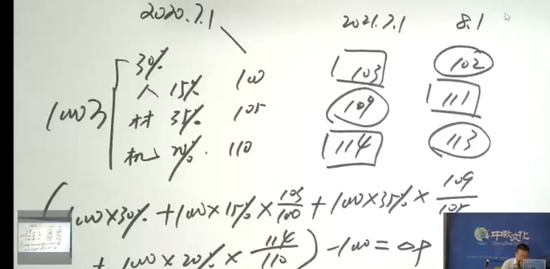 2020.7.1 2021.7.1 8.1
30%
人 15% 100 103 102
1000万 材 35% 105 109 111
机 20% 110 114 113
(1000×30% + 1000×15% × 103/100 + 1000×35% × 109/105
+ 1000×20% × 114/110) - 1000 = ΔP